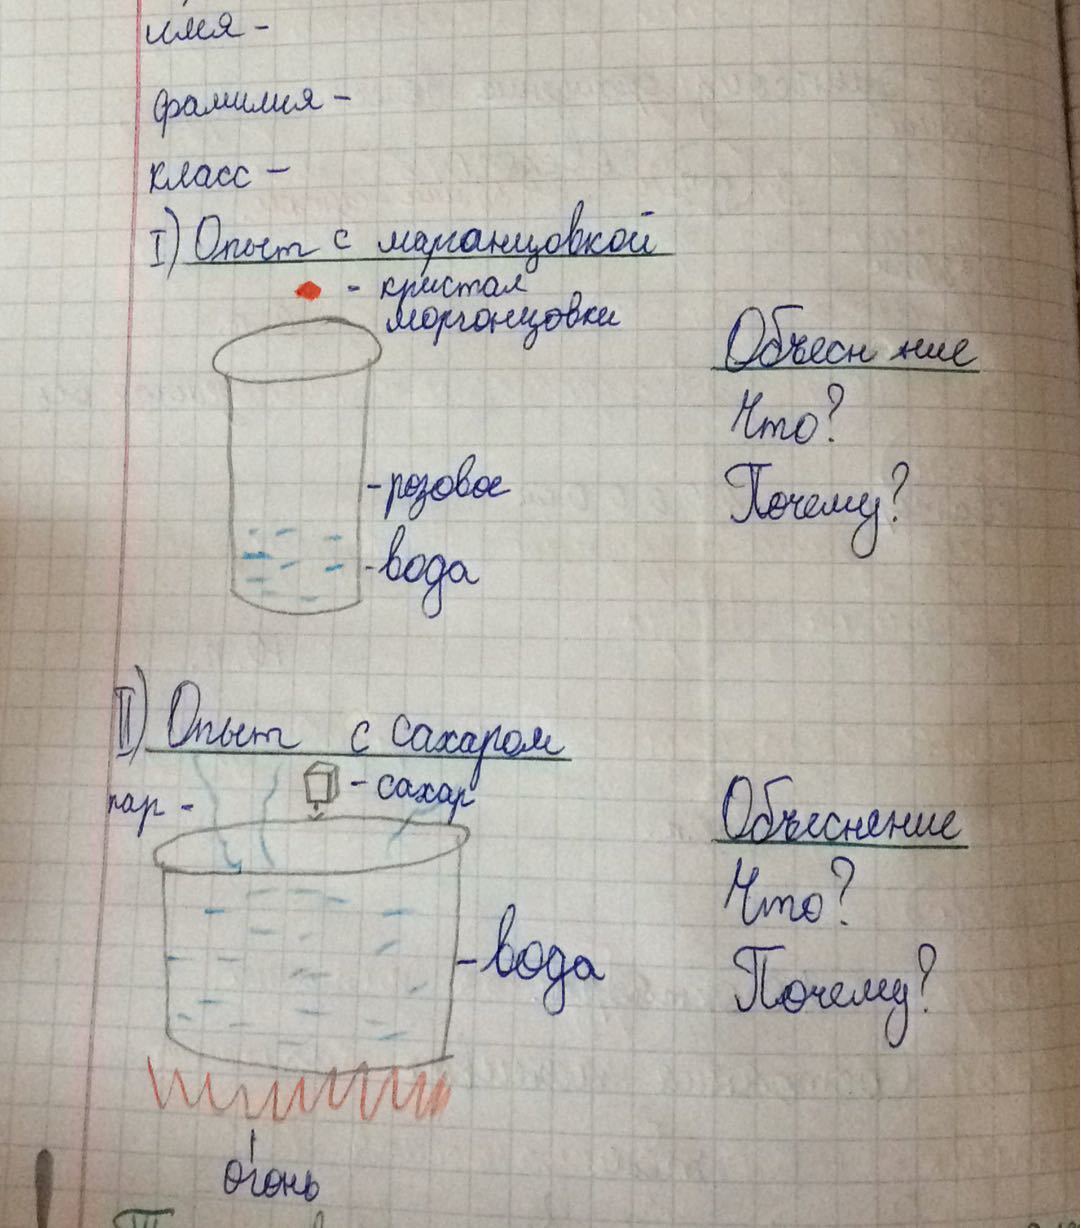 имя -
фамилия -
класс -
I) Опыт с марганцовкой
- кристал
морганцовки
Обьесн ние
Что?
- розовое
Почему?
- вода
II) Опыт с сахаром
- сахар
пар -
Обьеснение
Что?
- вода
Почему?
огонь